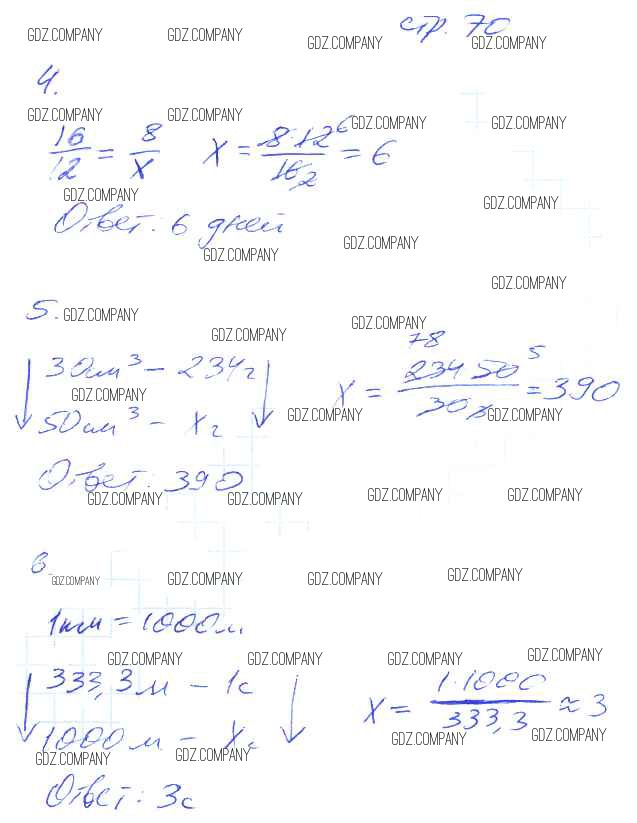 стр. 70
GDZ.COMPANY GDZ.COMPANY GDZ.COMPANY GDZ.COMPANY
4.
GDZ.COMPANY GDZ.COMPANY GDZ.COMPANY GDZ.COMPANY
16/12 = 8/x x = 8·12 6/16 2 = 6
GDZ.COMPANY GDZ.COMPANY
Ответ: 6 дней
GDZ.COMPANY GDZ.COMPANY
GDZ.COMPANY
5. GDZ.COMPANY GDZ.COMPANY
GDZ.COMPANY
↓ 30 см³ – 234 г ↓ x = 78 234 50 5/30 3 = 390
GDZ.COMPANY
↓ 50 см³ – x г ↓
GDZ.COMPANY GDZ.COMPANY
Ответ: 390
GDZ.COMPANY GDZ.COMPANY GDZ.COMPANY GDZ.COMPANY
6.
GDZ.COMPANY GDZ.COMPANY GDZ.COMPANY GDZ.COMPANY
1 км = 1000 м
GDZ.COMPANY GDZ.COMPANY GDZ.COMPANY GDZ.COMPANY
↓ 333,3 м – 1 с ↓ x = 1·1000/333,3 ≈ 3
↓ 1000 м – x с ↓
GDZ.COMPANY GDZ.COMPANY GDZ.COMPANY GDZ.COMPANY
Ответ: 3 с